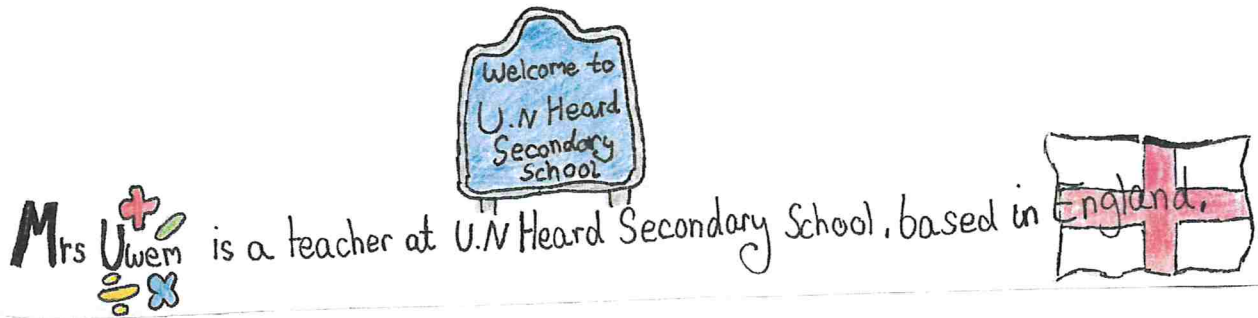 Welcome to
U.N Heard
Secondary
School
Mrs Uwem is a teacher at U.N Heard Secondary School, based in England.